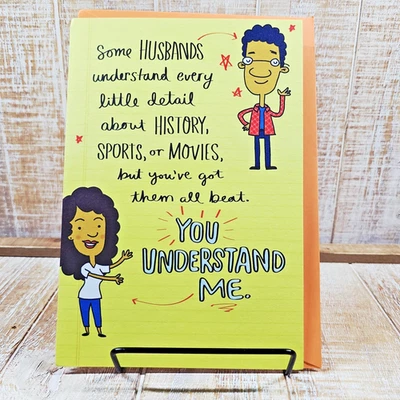 Some HUSBANDS
understand every
little detail
about HISTORY,
SPORTS, or MOVIES,
but you've got
them all beat.
YOU
UNDERSTAND
ME.